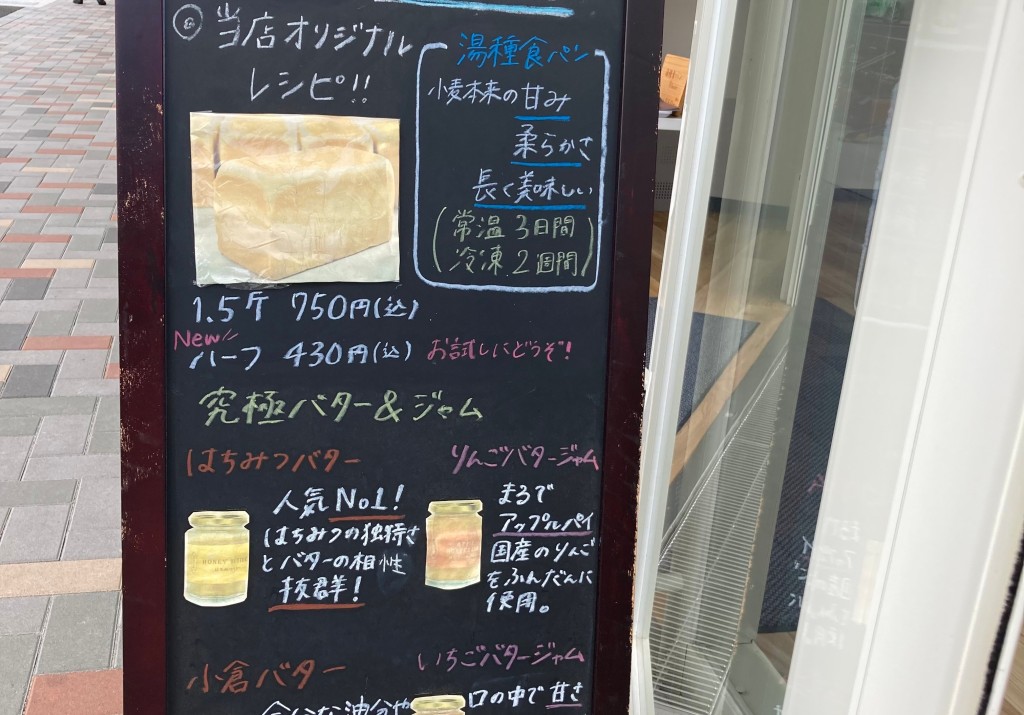 当店オリジナル
レシピ!!
湯種食パン
小麦本来の甘み
柔らかさ
長く美味しい
(常温3日間
冷凍2週間)
1.5ケ 750円(込)
New!!
ハーフ 430円(込) お試しにどうぞ!
究極バター&ジャム
はちみつバター
人気No.1!
はちみつの独特さ
とバターの相性
抜群!
りんごバタージャム
まるで
アップルパイ
国産のりんご
をふんだんに
使用。
小倉バター
いちごバタージャム
口の中で甘さ